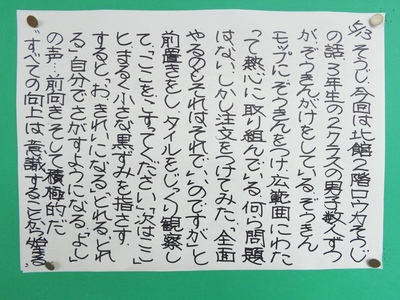 5/13 そうじ、今回は北館2階ロウカそうじ
の話。3年生の2クラスの男子数人ずつ
が、ぞうきんがけをしている。ぞうきん
モップに、ぞうきんをつけ、広範囲にわた
って熱心に取り組んでいる。何ら問題
はない。しかし注文をつけてみた。「全面
やるのもそれはそれで、いいのですが」と
前置きをし、タイルをじぃっと観察し
て、「ここをこすってください」「次はここ」
と、まるく小さな黒ずみを指さす。
すると、「おきれいになる」「どれる、どれ
る」自分でさがすようになる。「よし」
の声…前向き、そして積極的だ。
"すべての向上は、意識することから始まる